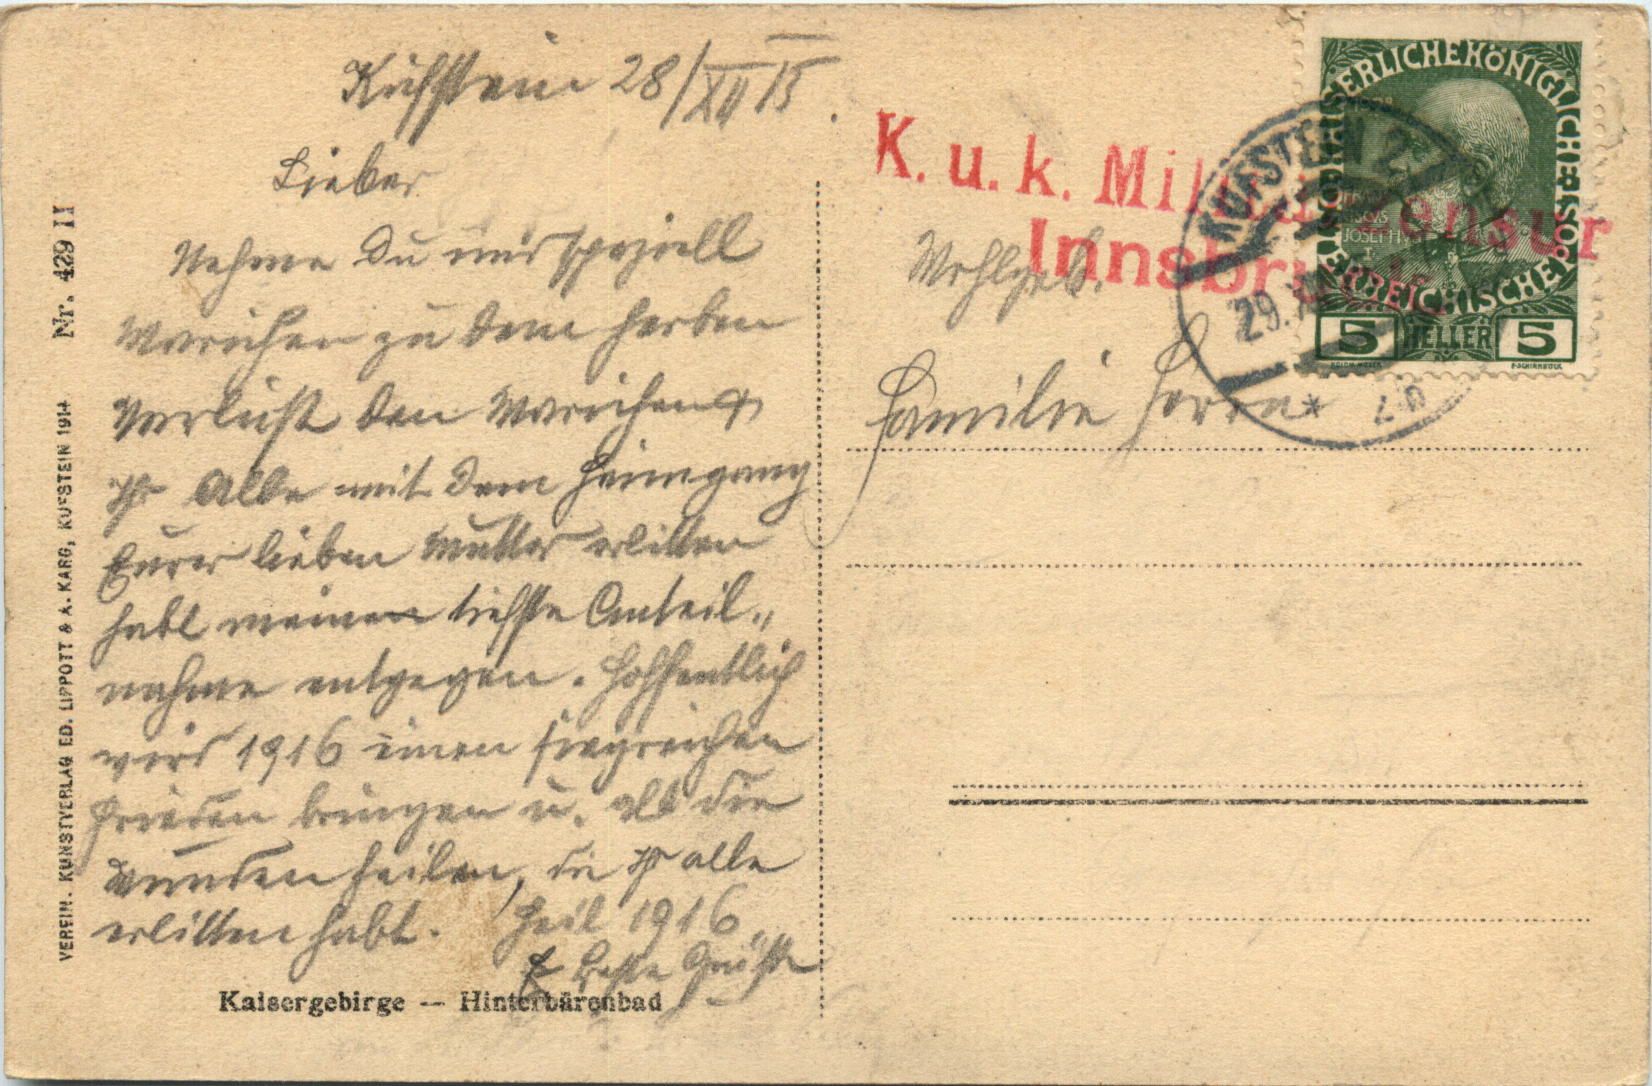 Kufstein 28/XII 15
Lieber
Nehme Du und speziell
Mariechen zu dem herben
Verlust den Mariechen &
Ihr Alle mit dem Heimgang
Eurer lieben Mutter erlitten
habt meine tiefste Anteil„
nahme entgegen. Hoffentlich
wird 1916 einen siegreichen
Frieden bringen u. all die
Wunden heilen, die Ihr alle
erlitten habt. Heil 1916
Beste Grüße
Kaisergebirge — Hinterbärenbad
VEREIN. KUNSTVERLAG ED. LIPPOTT & A. KARG, KUFSTEIN 1914 Nr. 429 II
K. u. k. Militärzensur
Innsbruck
Wohlgeb.
Familie
KAISERLICHE KÖNIGLICHE
ÖSTERREICHISCHE
5 HELLER 5
KUFSTEIN 2
29. XII